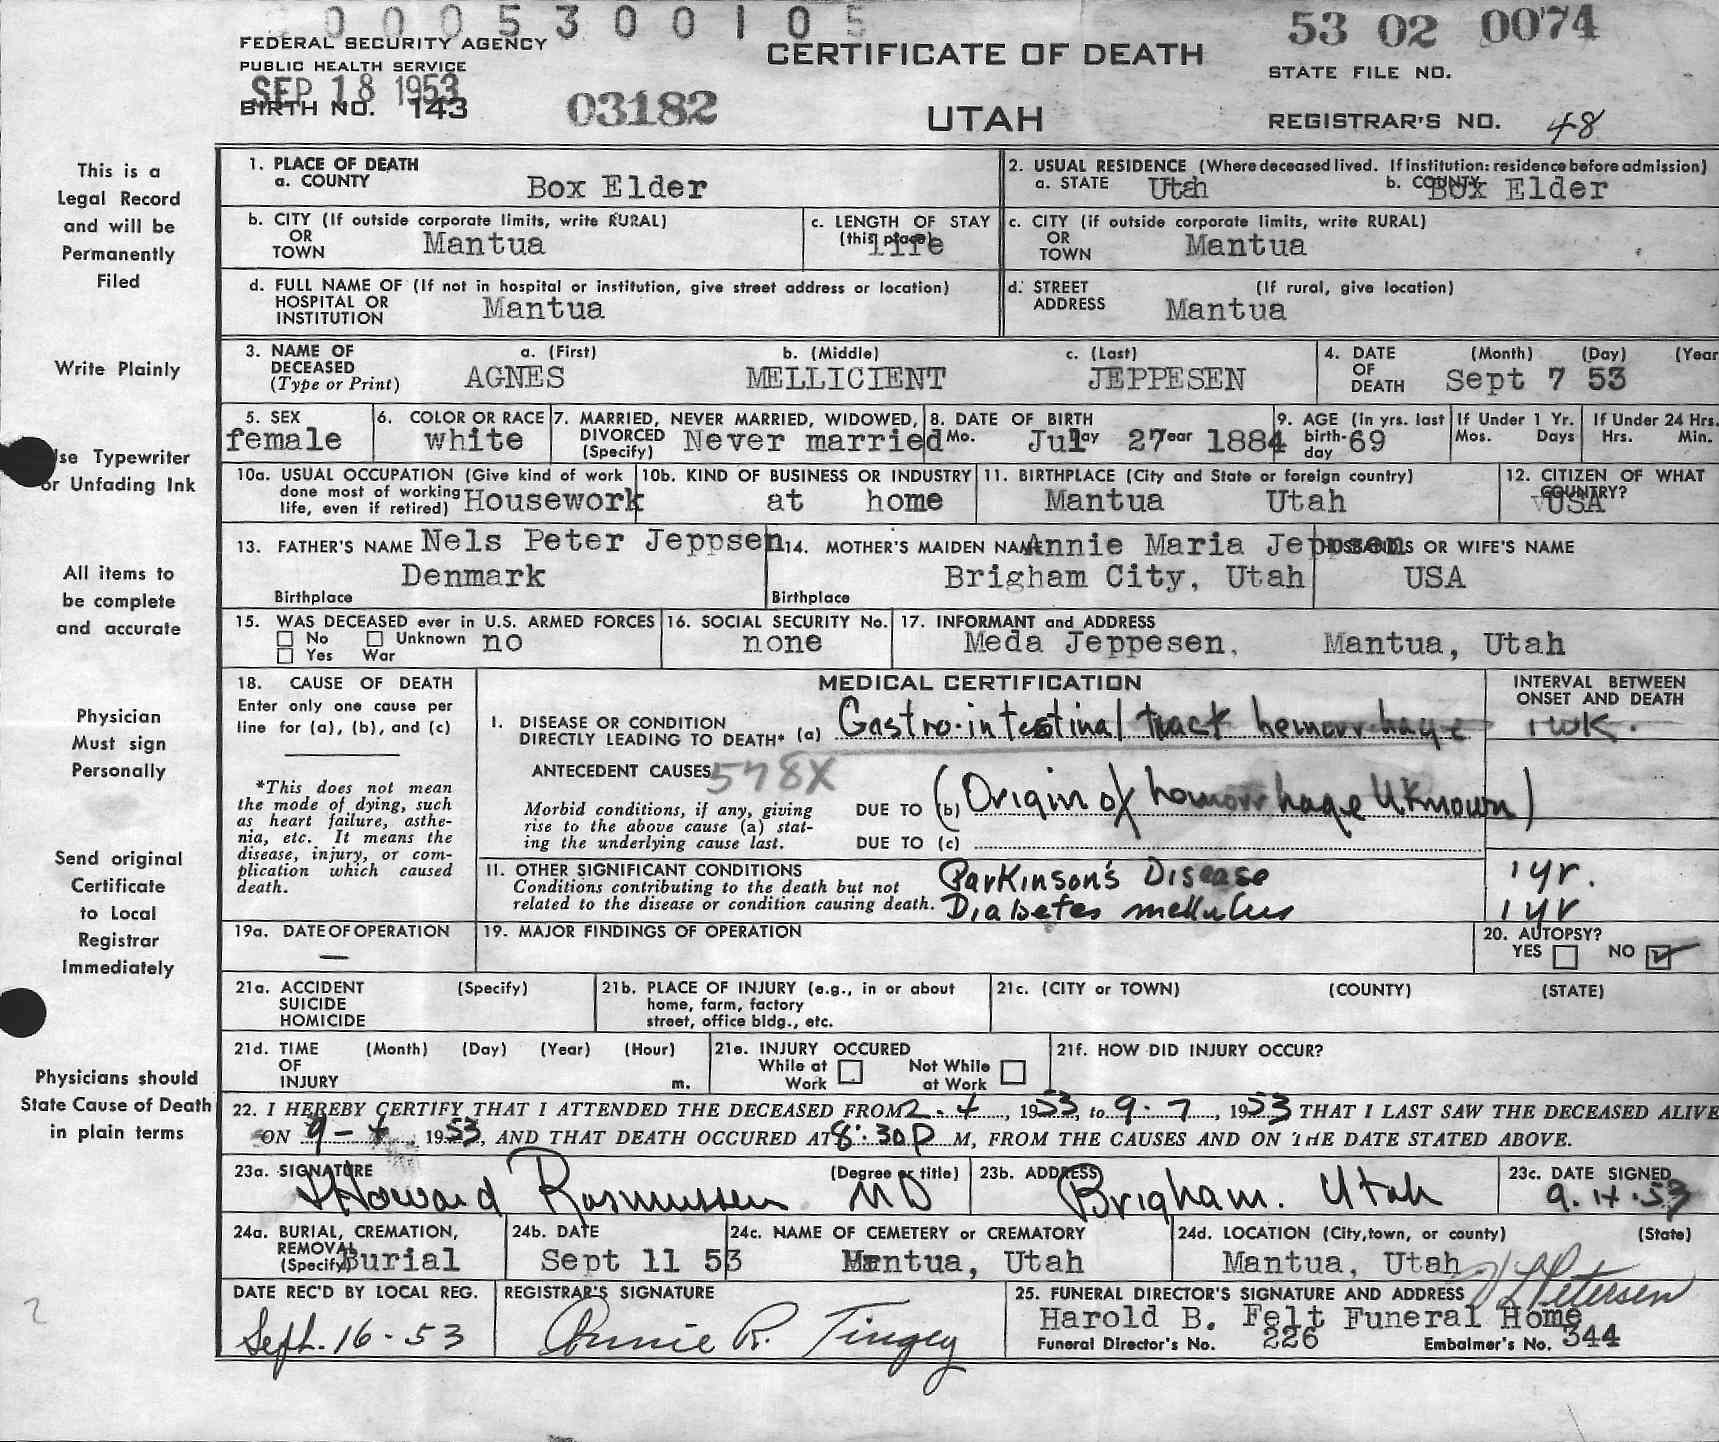 0 0 0 5 3 0 0 1 0 5
53 02 0074
FEDERAL SECURITY AGENCY
PUBLIC HEALTH SERVICE
CERTIFICATE OF DEATH
STATE FILE NO.
SEP 18 1953
BIRTH NO. 143
03182
UTAH
REGISTRAR'S NO. 48
This is a
Legal Record
and will be
Permanently
Filed
Write Plainly
Use Typewriter
or Unfading Ink
All items to
be complete
and accurate
Physician
Must sign
Personally
Send original
Certificate
to Local
Registrar
Immediately
Physicians should
State Cause of Death
in plain terms
1. PLACE OF DEATH
a. COUNTY Box Elder
2. USUAL RESIDENCE (Where deceased lived. If institution: residence before admission)
a. STATE Utah b. COUNTY Box Elder
b. CITY (If outside corporate limits, write RURAL)
OR
TOWN Mantua
c. LENGTH OF STAY
(this place) life
c. CITY (if outside corporate limits, write RURAL)
OR
TOWN Mantua
d. FULL NAME OF (If not in hospital or institution, give street address or location)
HOSPITAL OR
INSTITUTION Mantua
d. STREET (If rural, give location)
ADDRESS Mantua
3. NAME OF a. (First) b. (Middle) c. (Last)
DECEASED
(Type or Print) AGNES MELLICIENT JEPPESEN
4. DATE (Month) (Day) (Year
OF
DEATH Sept 7 53
5. SEX
female
6. COLOR OR RACE
white
7. MARRIED, NEVER MARRIED, WIDOWED,
DIVORCED Never married
(Specify)
8. DATE OF BIRTH
Mo. July Day 27 Year 1884
9. AGE (in yrs. last
birth- 69
day
If Under 1 Yr.
Mos. Days
If Under 24 Hrs.
Hrs. Min.
10a. USUAL OCCUPATION (Give kind of work
done most of working
life, even if retired) Housework
10b. KIND OF BUSINESS OR INDUSTRY
at home
11. BIRTHPLACE (City and State or foreign country)
Mantua Utah
12. CITIZEN OF WHAT
COUNTRY?
USA
13. FATHER'S NAME Nels Peter Jeppsen
Denmark
Birthplace
14. MOTHER'S MAIDEN NAME Annie Maria Jeppsen
Brigham City, Utah
Birthplace
HUSBANDS OR WIFE'S NAME
USA
15. WAS DECEASED ever in U.S. ARMED FORCES
No Unknown no
Yes War
16. SOCIAL SECURITY No.
none
17. INFORMANT and ADDRESS
Meda Jeppesen, Mantua, Utah
18. CAUSE OF DEATH
Enter only one cause per
line for (a), (b), and (c)
*This does not mean
the mode of dying, such
as heart failure, asthe-
nia, etc. It means the
disease, injury, or com-
plication which caused
death.
MEDICAL CERTIFICATION
INTERVAL BETWEEN
ONSET AND DEATH
I. DISEASE OR CONDITION
DIRECTLY LEADING TO DEATH* (a) Gastro-intestinal tract hemorrhage 1 wk.
ANTECEDENT CAUSES 578X
Morbid conditions, if any, giving
rise to the above cause (a) stat-
ing the underlying cause last.
DUE TO (b) Origin of hemorrhage Uknown)
DUE TO (c)
11. OTHER SIGNIFICANT CONDITIONS
Conditions contributing to the death but not
related to the disease or condition causing death.
Parkinson's Disease 1 yr.
Diabetes mellitus 1 yr
19a. DATE OF OPERATION
—
19. MAJOR FINDINGS OF OPERATION
20. AUTOPSY?
YES NO
21a. ACCIDENT (Specify)
SUICIDE
HOMICIDE
21b. PLACE OF INJURY (e.g., in or about
home, farm, factory
street, office bldg., etc.
21c. (CITY or TOWN) (COUNTY) (STATE)
21d. TIME (Month) (Day) (Year) (Hour)
OF
INJURY m.
21e. INJURY OCCURED
While at Not While
Work at Work
21f. HOW DID INJURY OCCUR?
22. I HEREBY CERTIFY THAT I ATTENDED THE DECEASED FROM 2-4, 1953, to 9-7, 1953 THAT I LAST SAW THE DECEASED ALIVE
ON 9-4, 1953, AND THAT DEATH OCCURED AT 8:30 P M, FROM THE CAUSES AND ON THE DATE STATED ABOVE.
23a. SIGNATURE (Degree or title)
J Howard Rasmussen MD
23b. ADDRESS
Brigham. Utah
23c. DATE SIGNED
9.14.53
24a. BURIAL, CREMATION,
REMOVAL
(Specify) Burial
24b. DATE
Sept 11 53
24c. NAME OF CEMETERY or CREMATORY
Mantua, Utah
24d. LOCATION (City, town, or county) (State)
Mantua, Utah
DATE REC'D BY LOCAL REG.
Sept. 16-53
REGISTRAR'S SIGNATURE
Annie R. Tingey
25. FUNERAL DIRECTOR'S SIGNATURE AND ADDRESS Petersen
Harold B. Felt Funeral Home
Funeral Director's No. 226 Embalmer's No. 344
2